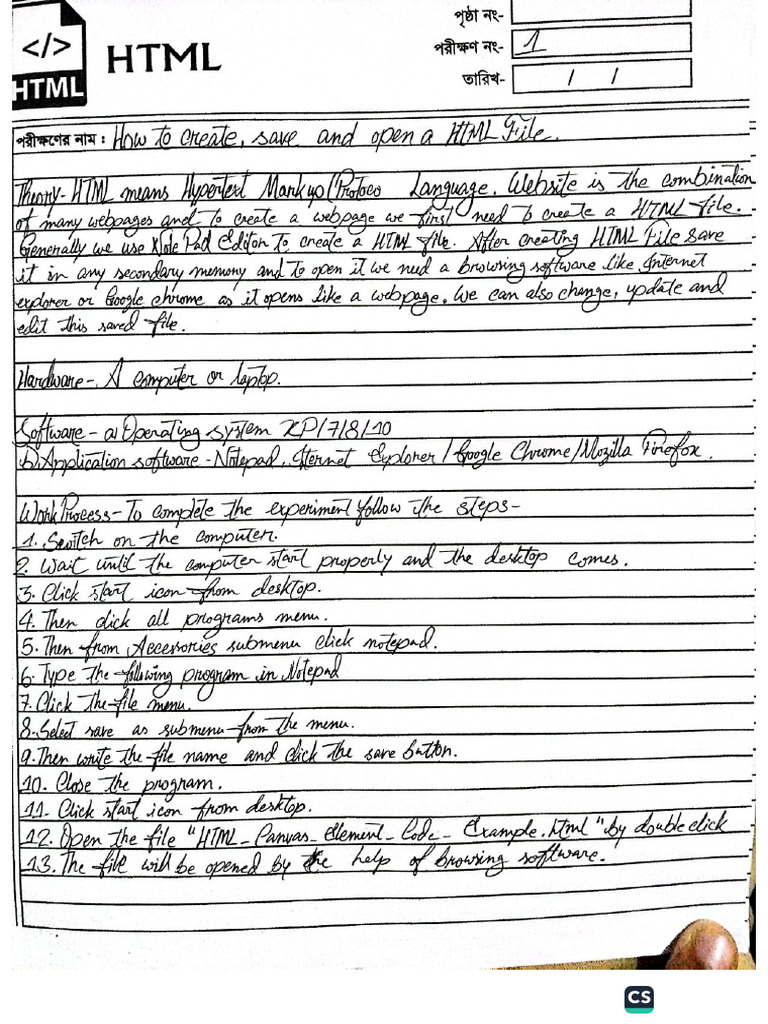 পৃষ্ঠা নং-
</>
HTML
HTML
পরীক্ষণ নং- 1
তারিখ- / /
পরীক্ষণের নাম : How to create, save and open a HTML File.
Theory- HTML means Hypertext Markup/Protoco Language. Website is the combination
of many webpages and to create a webpage we first need to create a HTML file.
Generally we use Note Pad Editor to create a HTML file. After creating HTML File save
it in any secondary memory and to open it we need a browsing software like Internet
explorer or Google chrome as it opens like a webpage. We can also change, update and
edit this saved file.
Hardware-. A computer or laptop.
Software - a) Operating system XP/7/8/10
b) Application software - Notepad, Iternet Explorer / Google Chrome/Mozilla Firefox.
Work Process- To complete the experiment follow the steps-
1. Switch on the computer.
2. Wait until the computer start properly and the desktop comes.
3. Click start icon from desktop.
4. Then click all programs menu.
5. Then from Accessories submenu click notepad.
6. Type the following program in Notepad
7. Click the file menu.
8. Select save as submenu from the menu.
9. Then write the file name and click the save button.
10. Close the program.
11. Click start icon from desktop.
12. Open the file "HTML_Canvas_Element_Code_Example.html" by double click
13. The file will be opened by the help of browsing software.
CS